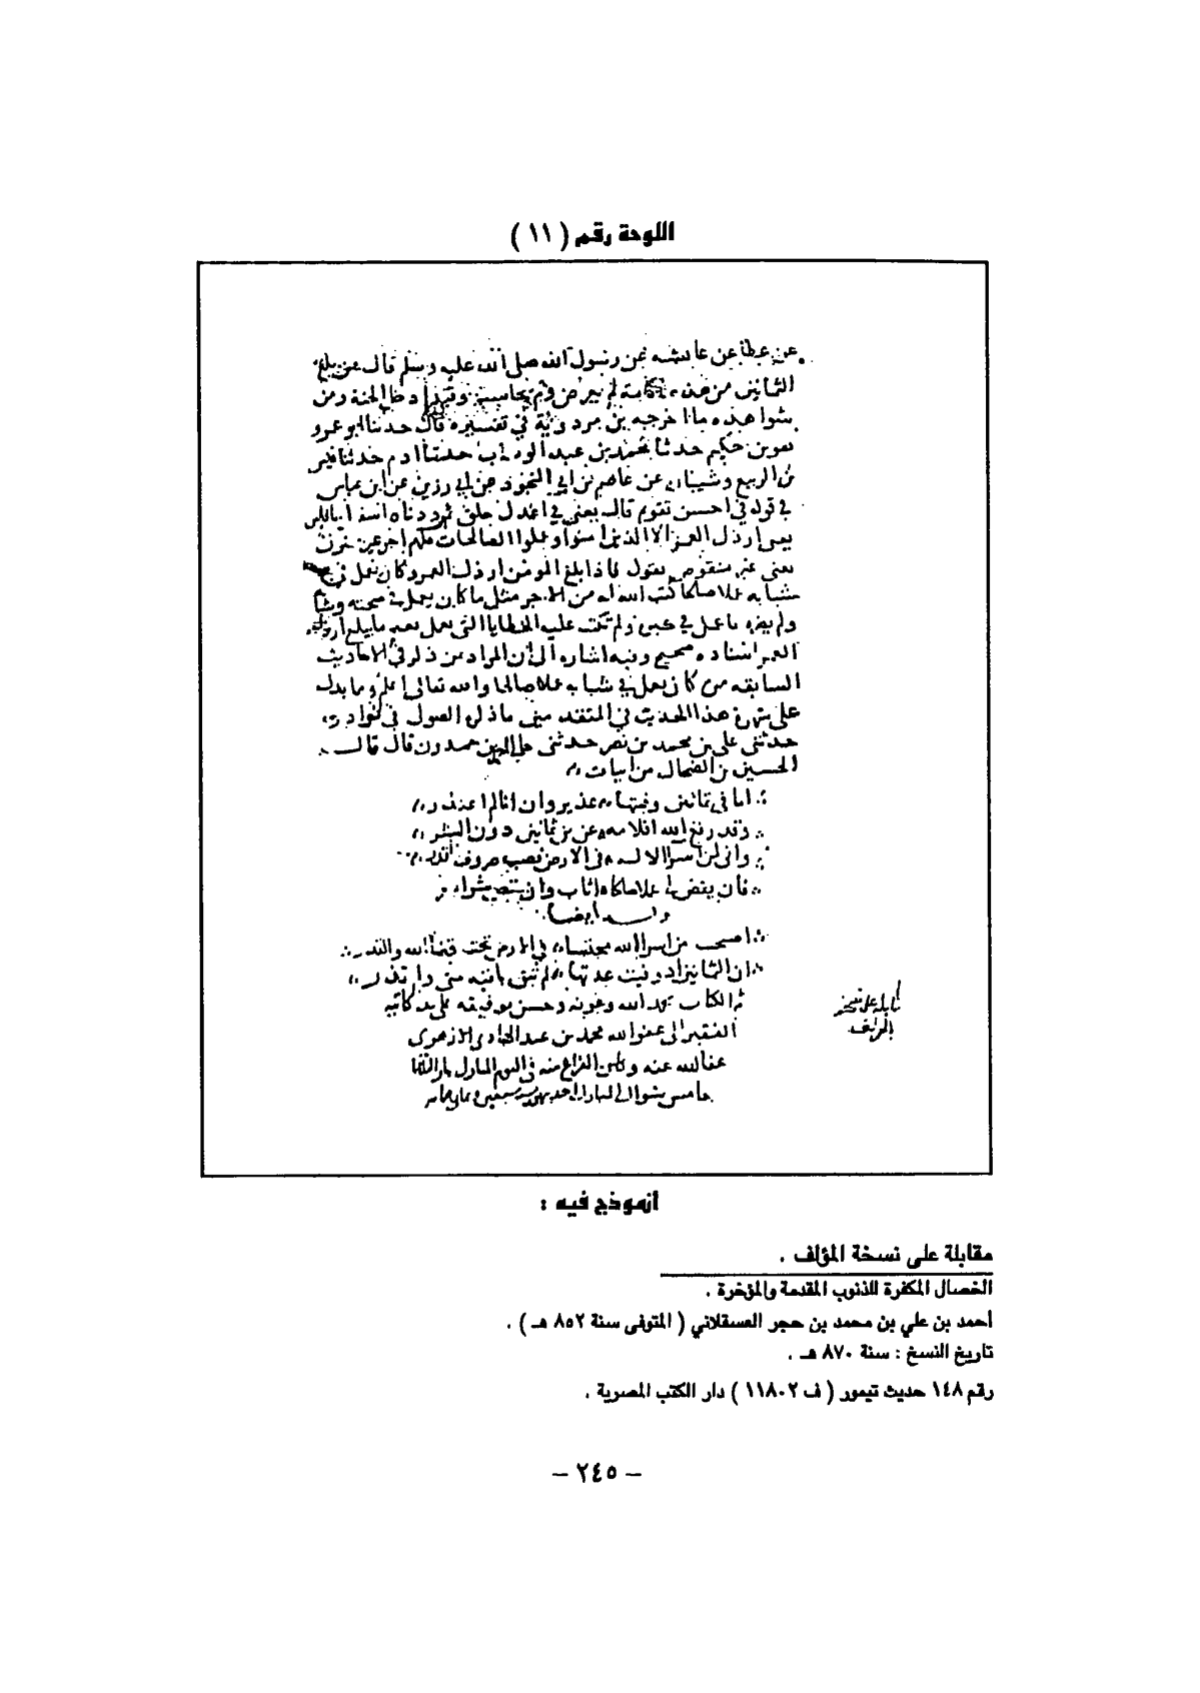 اللوحة رقم ( ١١ )
عن عطا عن عايشه عن رسول الله صلى الله عليه وسلم قال من بلغ
الثمانين من هذه الامة لم يعرض ولم يحاسب وقيل ادخل الجنة ومن
شواهده ما اخرجه بن مردوية في تفسيره قال حدثنا ابو عمرو
بن حكيم حدثنا محمد بن عبد الوهاب حدثنا ادم حدثنا قيس
بن الربيع وشيبان عن عاصم بن ابي النجود عن ابي رزين عن ابن عباس
في قوله في احسن تقويم قال يعني في اعدل خلق ثم رددناه اسفل سافلين
يعني ارذل العمر الا الذين امنوا وعملوا الصالحات فلهم اجر غير ممنون
يعني غير منقوص يقول فاذا بلغ المومن ارذل العمر وكان يعمل في
شبابه عملا صالحا كتب الله له من الاجر مثل ما كان يعمل في صحته وشبا
ولم يضره ما عمل في كبره ولم تكتب عليه الخطايا التي يعمل بعد ما يبلغ ارذل
العمر اسناده صحيح وفيه اشاره الى ان المراد من ذكر في الاحاديث
السابقه من كان يعمل في شبابه عملا صالحا والله تعالى اعلم ومما يدل
على شهرة هذا الحديث في المتقدمين ما ذكره الصولي في نوادره
حدثني علي بن محمد بن نصر حدثني خالي بن حمدون قال قال
الحسين بن الضحاك من ابيات
اما في ثمانين وفيتها عذير وان انا لم اعتذر
وقد رفع الله اقلامه عن بن ثمانين دون البشر
واني لمن اسرا الاله في الارض نصب صروف القدر
فان يقض لي عملا صالحا اثاب وان يقض شرا غفر
وله ايضا
اصبحت من اسرا الله محتسبا في الارض تحت قضا الله والقدر
ان الثمانين اذ وفيت عدتها لم تبق باقيه مني ولم تذر
تم الكتاب بحمد الله وعونه وحسن توفيقه على يد كاتبه
الفقير الى عفو الله محمد بن عبد الهادي الازهري
عفا الله عنه وكان الفراغ منه في اليوم المبارك نهار الثلاثا
خامس شوال المبارك احد شهور سنة سبعين وثمان مايه
قابله على نسخة
المولف
أنموذج فيه :
مقابلة على نسخة المؤلف .
الخصال المكفرة للذنوب المقدمة والمؤخرة .
أحمد بن علي بن محمد بن حجر العسقلاني ( المتوفى سنة ٨٥٢ هـ ) .
تاريخ النسخ : سنة ٨٧٠ هـ .
رقم ١٤٨ حديث تيمور ( ف ١١٨٠٢ ) دار الكتب المصرية .
– ٢٤٥ –